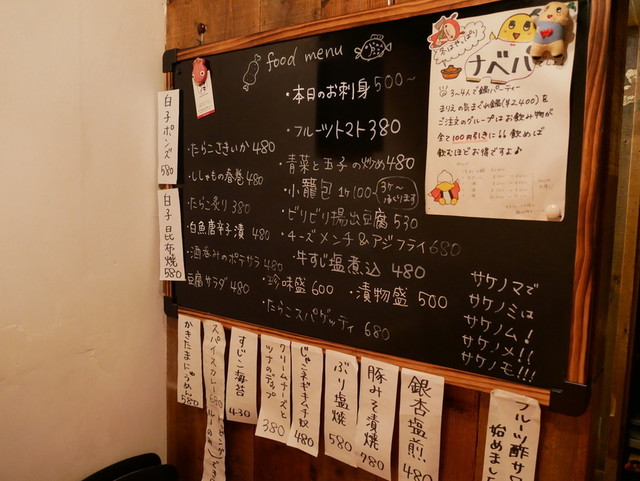 food menu
・本日のお刺身 500～
・フルーツトマト 380
・たらこさきいか 480
・青菜と玉子の炒め 480
・ししゃもの春巻 480
・小籠包 1ケ100
3ケ～
・たらこ炙り 380
・ビリビリ揚出豆腐 530
・白魚唐辛子漬 480
・チーズメンチ&アジフライ 680
・酒呑みのポテサラ 480
・牛すじ塩煮込 480
・豆腐サラダ 480
・珍味盛 600
・漬物盛 500
・たらこスパゲッティ 680
サケノマで
サケノミは
サケノム!
サケノメ!!
サケノモ!!!
冬はやっぱり
ナベパ
3～4人で鍋パーティー
まりえの気まぐれ鍋(¥2400)を
ご注文のグループはお飲み物が
全て100円引きに!!飲めば
飲むほどお得ですよ♪
白子ポンズ 580
白子昆布焼 580
かきたまにゅうめん 580
スパイスカレー 680
すじこ海苔 430
クリームチーズと
ツナのディップ 380
じゃこネギキムチ奴 480
ぶり塩焼 580
豚みそ漬焼 780
銀杏塩煎 480
フルーツ酢サワ
始めまし